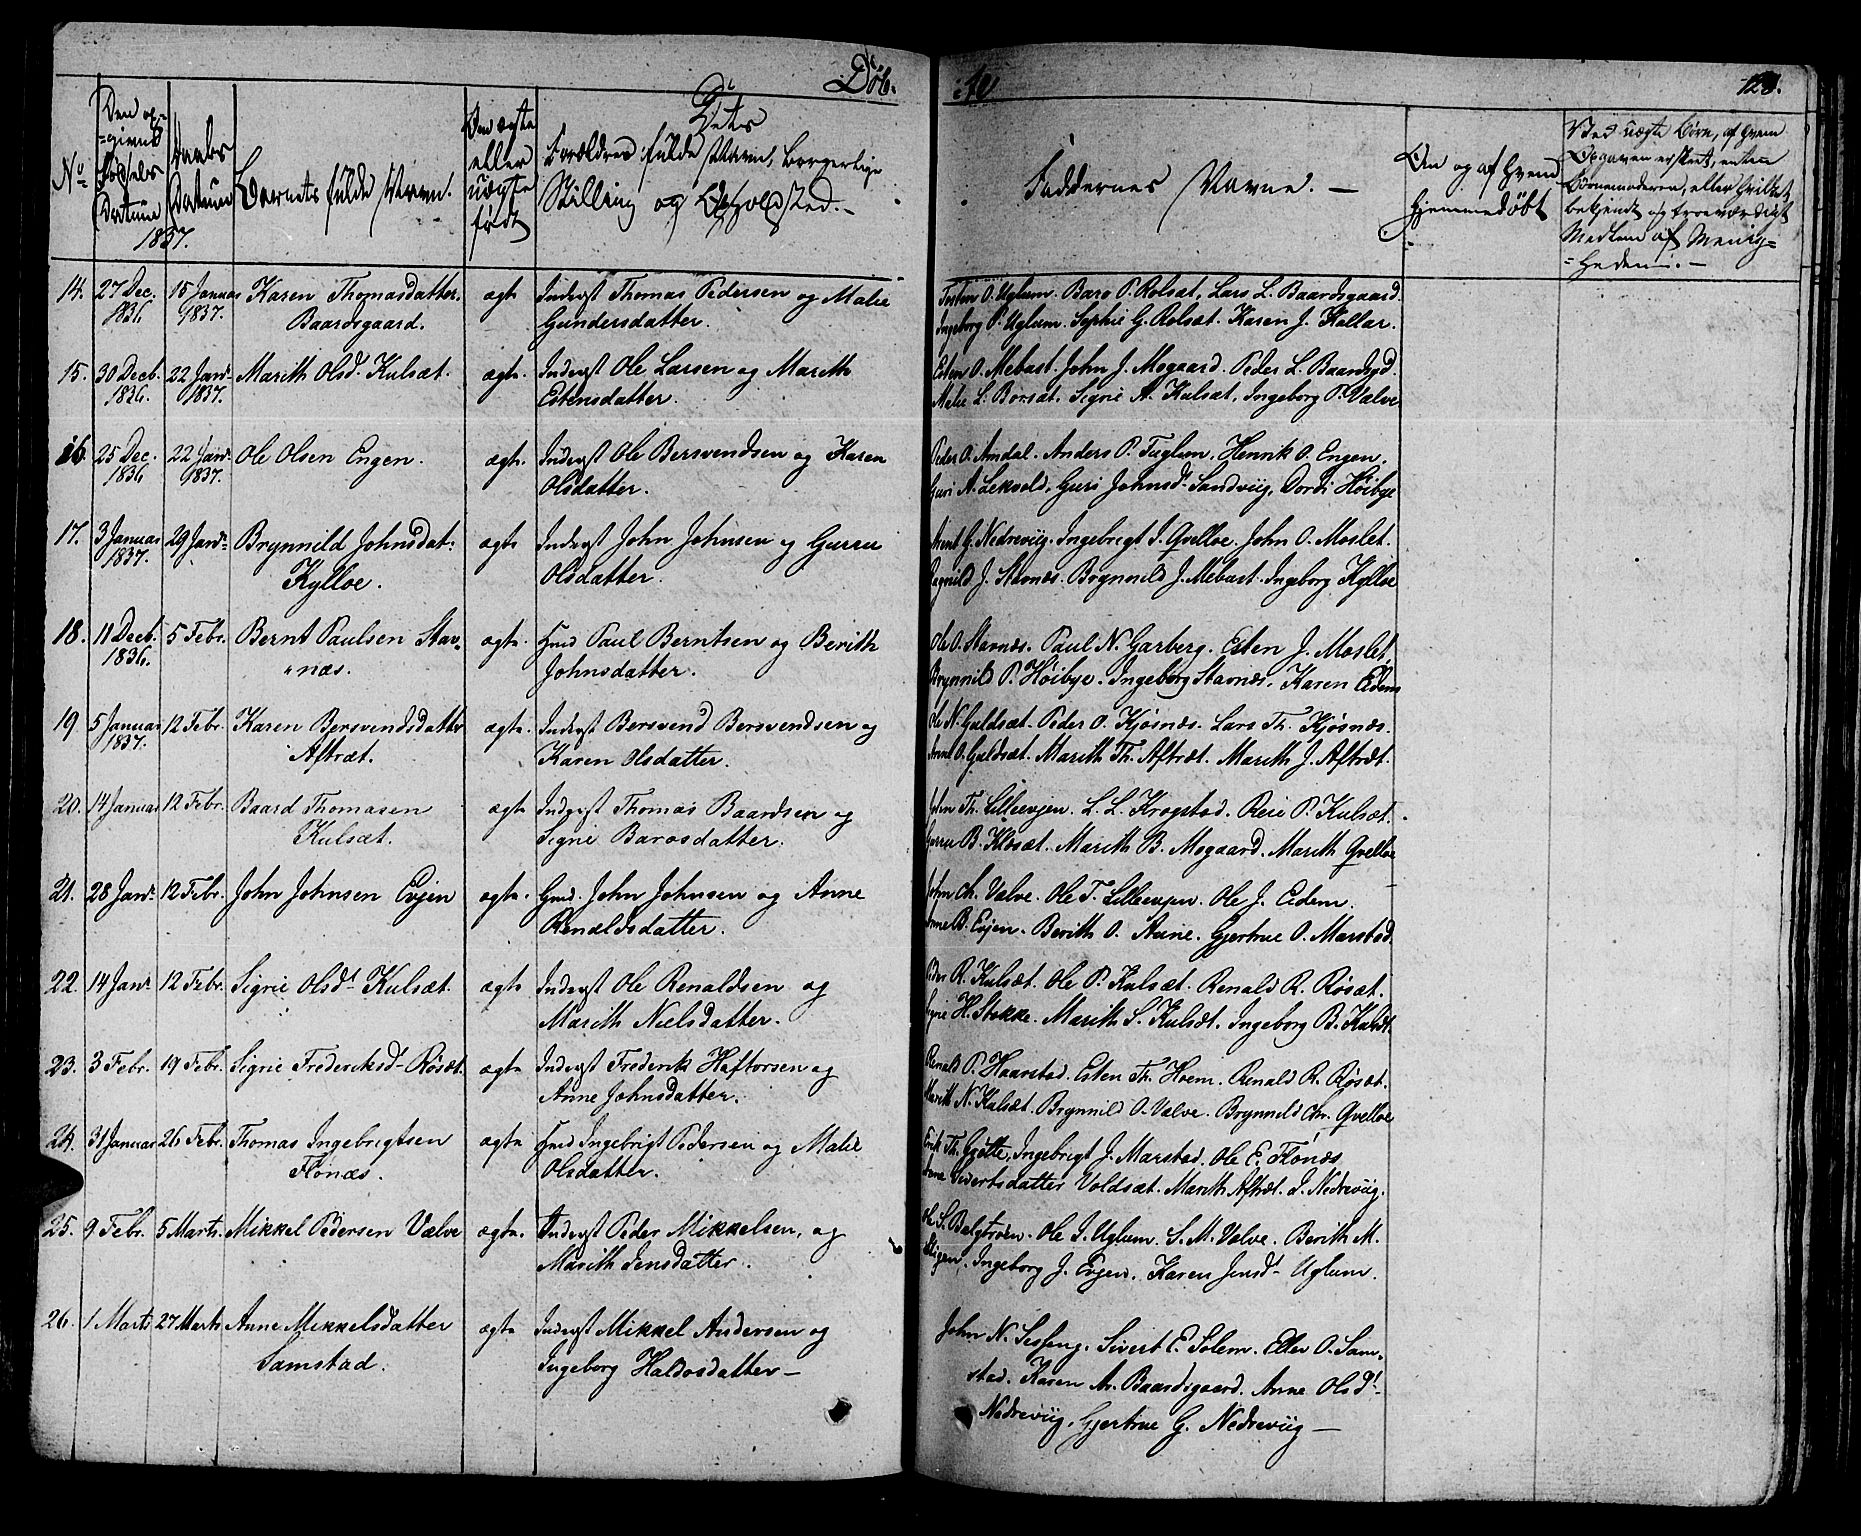 Døb-
-te
128.
No
Den op-
-givne
Fødsels
Datum
Daabs
Datum
1837.
Barnets fulde Navn.
Om ægte
eller
uægte
født
Dets
Forældres fulde Navn, borgerlige
Stilling og Opholdsted.-
Faddernes Navne. -
Om og af hvem
hjemmedøbt
Ved uægte Børn, af hvem
Opgaven er skeet, enten
Børnemoderen, eller hvilket
bekjendt og troeværdigt
Medlem af Menig=
=heden. -
14. 27 Dec. 1836. 15 Januar 1837. Karen Thomasdatter
Baardsgaard.
ægte Inderst Thomas Pedersen og Malie
Gundersdatter.
O. Uglum. Baro P. Rolsæt, Lars L. Baardsgaard.
Ingeborg P. Uglum. Sophie G. Rolsæt. Karen J. Kallar.
15. 30 Decb. 1836. 22 Janr 1837. Marith Olsd. Kulsæt.
ægte. Inderst Ole Larsen og Marith
Estensdatter.
Esten O. Mebust. John J. Mogaard. Peder L. Baardsgd
Malie L. Borsæt. Sigrie A. Kulsæt, Ingeborg P. Valve
16. 25 Dec. 1836 22 Janr. 1837. Ole Olsen Engen.
ægte. Inderst Ole Bersvendsen og Karen
Olsdatter.
Peder O. Amdal. Anders P. Fuglum, Henrik O. Engen,
Guri A. Lekvold, Guri Johnsdr Sandviig, Dordi Høibye
17. 3 Januar 1837. 29 Janr. Brynnild Johnsdat:
Kylloe.
ægte Inderst John Johnsen og Gurru
Olsdatter.
Arent G. Nedreviig. Ingebrigt I. Qvelloe. John O. Moslet.
Ragnild J. Stavnæs. Brynnild J. Mebust. Ingeborg Kylloe
18. 11 Decb. 1836. 5 Febr. Bernt Paulsen Stav-
"næs.
ægte. Hmd Paul Berntsen og Berith
Johnsdatter.
Ole O. Stavnæs. Paul N. Garberg. Esten J. Moslet,
Brynnild P. Høibye. Ingeborg Stavnæs, Karen Eidem
19 5 Januar 1837. 12 Febr. Karen Bersvendsdatter
Aftræt.
ægte. Inderst Bersvend Bersvendsen og
Karen Olsdatter.
Ole N. Guldsæt. Peder O. Kjøsnæs. Lars Th. Kjøsnæs.
O. Guldsæt. Marith Th. Aftræt. Marith J. Aftræt.
20. 14 Januar 12 Febr. Baard Thomasen
Kulsæt.
ægte Inderst Thomas Baardsen og
Signe Barosdatter.
John Th. Lilleevjen. L. L. Krogstad. Reie P. Kulsæt.
Gurru B. Kløsæt. Marith B. Mogaard. Marith Qvelloe
21. 28 Janr. 12 Febr. John Johnsen Evjen
ægte. Gmd. John Johnsen og Anne
Renaldsdatter.
John Ch. Valve. Ole T. Lilleevjen. Ole J. Eidem.
Anne B. Evjen. Berith O. Aune. Gjertrue O. Marstad.
22. 14 Janr 12 Febr. Sigrie Olsdr Kulsæt.
ægte Inderst Ole Renaldsen og
Marith Nielsdatter.
Peder R. Kulsæt. Ole P. Kulsæt. Renald R. Røsæt.
Sigrie H. Stokke. Marith S. Kulsæt, Ingeborg B. Kulsæt.
23. 3 Febr. 19 Febr. Sigrie Frederiksdr Røsæt.
ægte Inderst Frederik Haftorsen og
Anne Johnsdatter.
Renald P. Haarstad. Esten Th. Hoem. Renald R. Røsæt.
Marith N. Kulsæt. Brynnild O. Valve. Brynnild Chr. Qvelloe
24. 31 Januar 26 Febr. Thomas Ingebrigtsen
Flønæs.
ægte Hmd Ingebrigt Pedersen og Malie
Olsdatter.
Erik Th. Gjøtte, Ingebrigt J. Marstad. Ole E. Flønæs,
Anne Sivertsdatter Voldsæt. Marith Aftræt. I. Nedreviig.
25. 9 Febr. 5 Marts. Mikkel Pedersen Valve
ægte. Inderst Peder Mikkelsen, og
Marith Jensdatter.
Ole S. Balgtroen. Ole J. Uglum. S. M. Valve. Berith M.
Stigen, Ingeborg J. Evjen. Karen Jensdr Uglum.
26. 1 Marts 27 Marts Anne Mikkelsdatter
Samstad.
ægte Inderst Mikkel Andersen og
Ingeborg Haldosdatter -
John N. Sesseng. Sivert E. Solem. Ellev O. Sam-
stad. Karen Ar. Baardsgaard. Anne Olsdr
Nedreviig, Gjertrue G. Nedreviig -